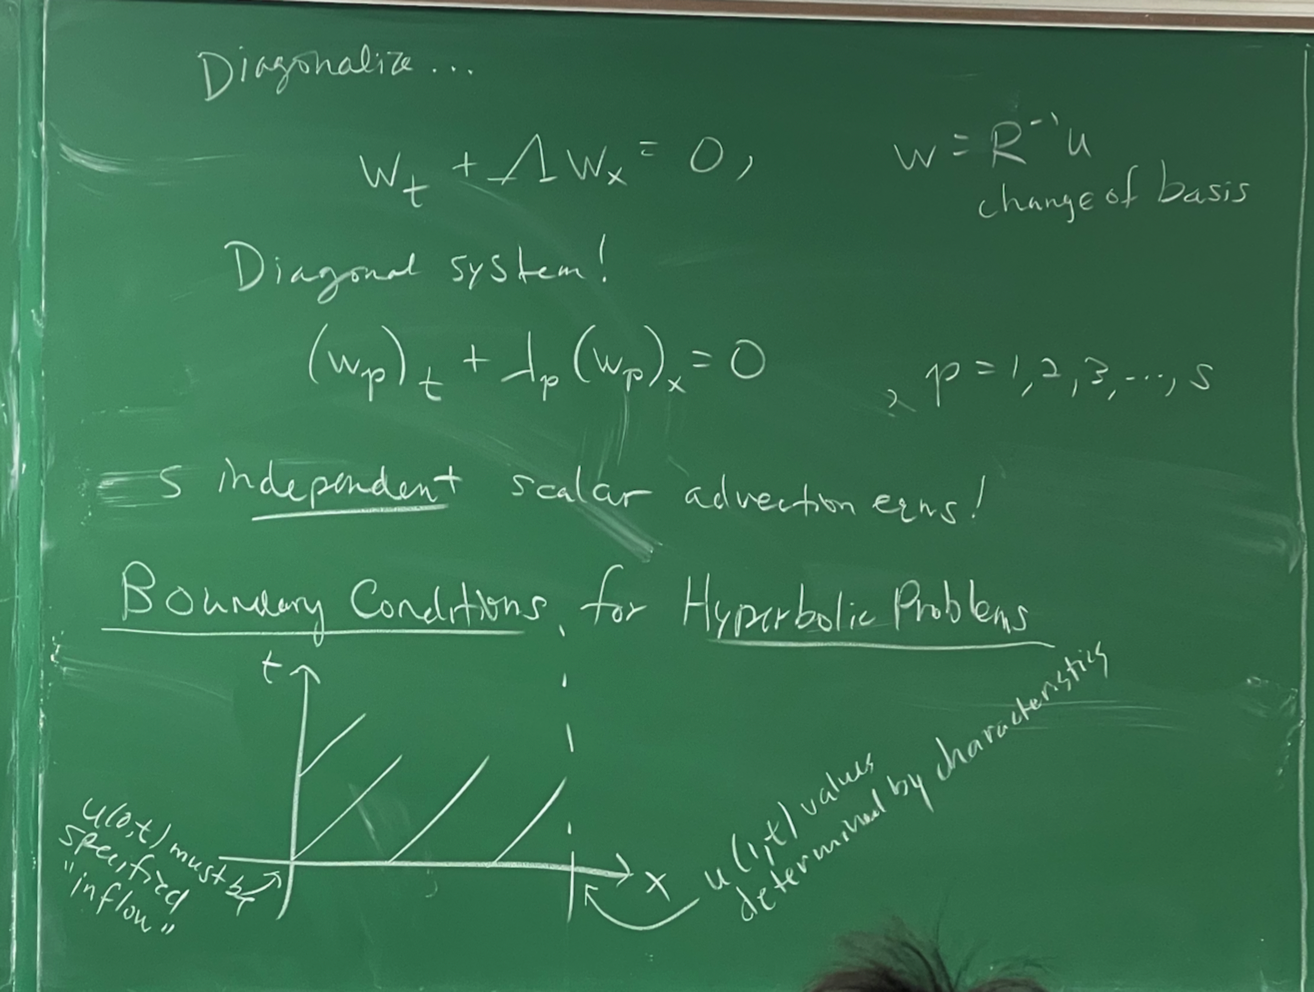 Diagonalize...
w_t + Λ w_x = 0, w = R⁻¹u
change of basis
Diagonal system!
(w_p)_t + λ_p (w_p)_x = 0 , p = 1, 2, 3, ..., s
s independent scalar advection eqns!
Boundary Conditions for Hyperbolic Problems
t
x
u(0,t) must be
specified
"inflow"
u(1,t) values
determined by characteristics